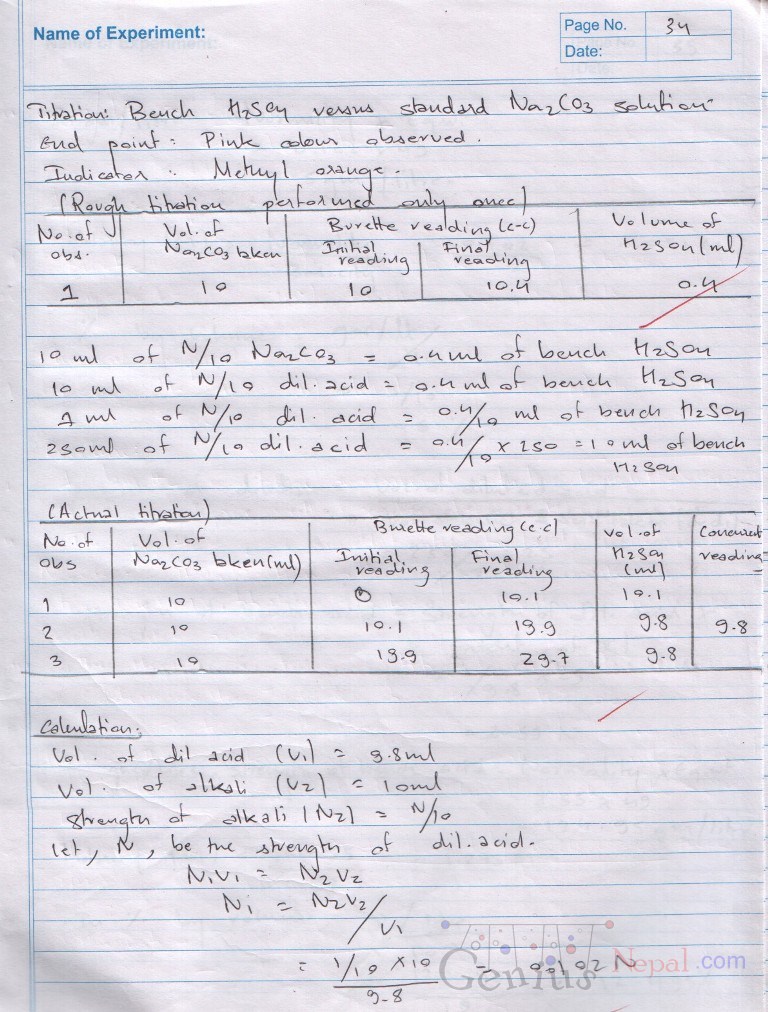 Name of Experiment:
Page No. 34
Date:
Titration: Bench H2SO4 versus standard Na2CO3 solution
End point: Pink colour observed.
Indicator: Methyl orange.
(Rough titration performed only once)
No. of obs. Vol. of Na2CO3 taken Burette reading (c.c) Initial reading Final reading Volume of H2SO4 (ml)
1 10 10 10.4 0.4
10 ml of N/10 Na2CO3 = 0.4 ml of bench H2SO4
10 ml of N/10 dil. acid = 0.4 ml of bench H2SO4
1 ml of N/10 dil. acid = 0.4/10 ml of bench H2SO4
250ml of N/10 dil. acid = 0.4/10 x 250 = 10 ml of bench
H2SO4
(Actual titration)
No. of obs Vol. of Na2CO3 taken (ml) Burette reading (c.c) Initial reading Final reading vol. of H2SO4 (ml) Concurrent reading
1 10 0 10.1 10.1
2 10 10.1 19.9 9.8 9.8
3 10 19.9 29.7 9.8
Calculation:
Vol. of dil acid (V1) = 9.8ml
Vol. of alkali (V2) = 10ml
Strength of alkali (N2) = N/10
let, N1 be the strength of dil. acid.
N1V1 = N2V2
N1 = N2V2/V1
= 1/10 x 10 / 9.8 = 0.102 N
GeniusNepal.com